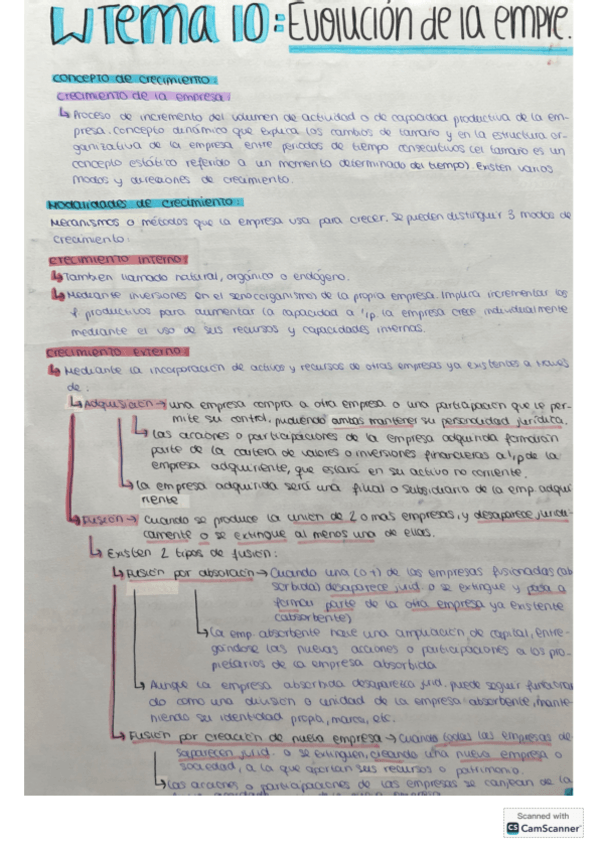 Tema 10: Evolución de la empre.
Concepto de crecimiento:
Crecimiento de la empresa:
Proceso de incremento del volumen de actividad o de capacidad productiva de la em-
presa. Concepto dinámico que explica los cambios de tamaño y en la estructura or-
ganizativa de la empresa entre periodos de tiempo consecutivos (el tamaño es un
concepto estático referido a un momento determinado del tiempo). Existen varios
modos y direcciones de crecimiento.
Modalidades de crecimiento:
Mecanismos o métodos que la empresa usa para crecer. Se pueden distinguir 3 modos de
crecimiento:
Crecimiento interno:
También llamado natural, orgánico o endógeno.
Mediante inversiones en el seno organismos de la propia empresa. Implica incrementar los
f. productivos para aumentar la capacidad a l/p. la empresa crece individualmente
mediante el uso de sus recursos y capacidades internas.
Crecimiento externo:
Mediante la incorporación de activos y recursos de otras empresas ya existentes a través
de:
Adquisición → una empresa compra a otra empresa o una participación que le per-
mite su control, pudiendo ambas mantener su personalidad jurídica.
Las acciones o participaciones de la empresa adquirida formarán
parte de la cartera de valores o inversiones financieras a l/p de la
empresa adquiriente, que estará en su activo no corriente.
La empresa adquirida será una filial o subsidiaria de la emp. adqui
riente
Fusión → Cuando se produce la unión de 2 o mas empresas, y desaparece jurídi-
camente o se extingue al menos una de ellas.
Existen 2 tipos de fusión:
Fusión por absorción → Cuando una (o +) de las empresas fusionadas (ab
sorbida) desaparece jurid. o se extingue y pasa a
formar parte de la otra empresa ya existente
(absorbente)
La emp. absorbente hace una ampliación de capital, entre-
gándose las nuevas acciones o participaciones a los pro-
pietarios de la empresa absorbida
Aunque la empresa absorbida desaparezca jurid. puede seguir funcionan
do como una división o unidad de la empresa absorbente, mante-
niendo su identidad propia, marca, etc.
Fusión por creación de nueva empresa → Cuando todas las empresas de-
saparecen jurid. o se extinguen, creando una nueva empresa o
sociedad, a la que aportan sus recursos o patrimonio.
Las acciones o participaciones de las empresas se canjean de la
Scanned with
CS CamScanner